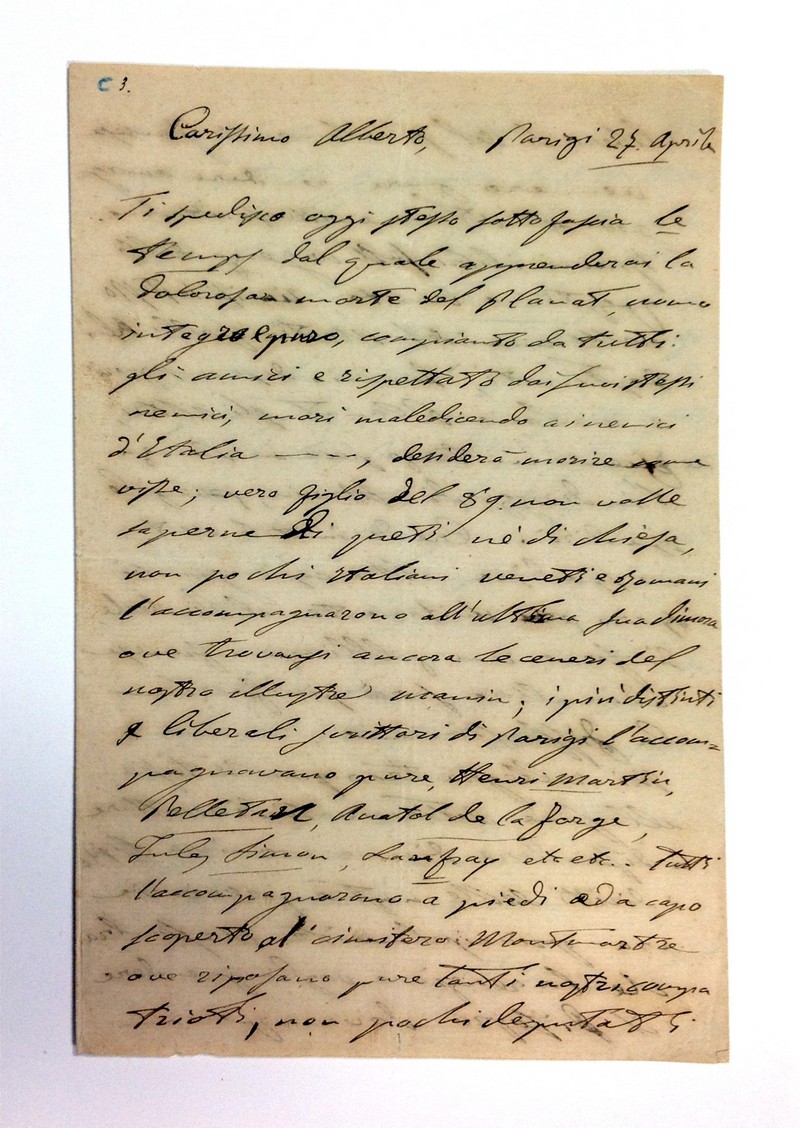 C 3.
Carissimo Alberto, Parigi 27. Aprile
Ti spedisco oggi stesso sotto fascia le
Temps dal quale apprenderai la
dolorosa morte del Planat, uomo
integro e puro, compianto da tutti
gli amici e rispettato dai suoi stessi
nemici, morì maledicendo ai nemici
d'Italia ----, desiderà morire come
visse; vero figlio del 89. non volle
saperne di preti nè di chiesa,
non pochi Italiani veneti e Romani
l'accompagnarono all'ultima sua dimora
ove trovansi ancora le ceneri del
nostro illustre manin; i più distinti
e liberali scrittori di Parigi l'accom=
pagnavano pure, Henri Martin,
Pelletan, Anatol de la Forge,
Jules Simon, Lanfray etc etc.. Tutti
l'accompagnarono a piedi ed a capo
scoperto al cimitero Montmartre
ove riposano pure tanti nostri compa
trioti, non pochi deputati